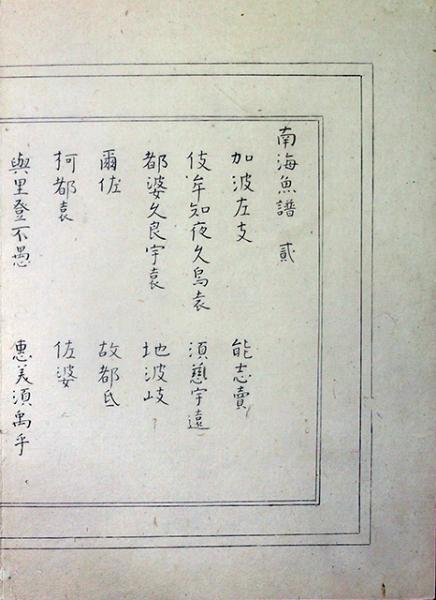 南海魚譜 貳
加波左支 能志賣
伎牟知夜久烏袁 須慈宇遠
都婆久良宇袁 地波岐
爾佐 故都氐
柯都袁 佐婆
與里登不愚 惠美須禹乎